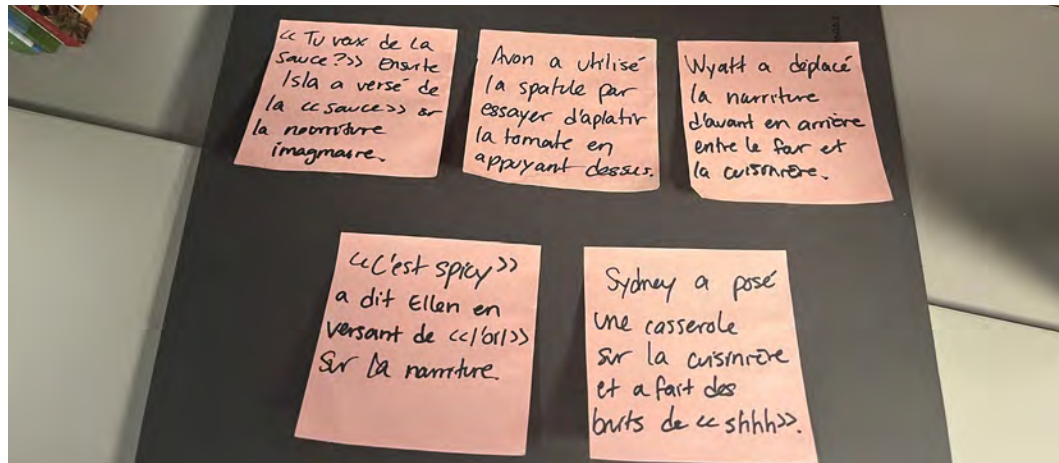 << Tu vax de la
sauce ?>> Ensuite
Isla a versé de
la << sauce >> sr
la nourriture
imaginaire.
Avon a utilisé
la spatule par
essayer d'aplatir
la tomate en
appuyant dessus.
Wyatt a déplacé
la nurriture
d'avant en arrière
entre le four et
la cuisinière.
<< C'est spicy >>
a dit Ellen en
versant de << l'oil >>
sur la nurriture.
Sydney a posé
une casserole
sur la cuisinière
et a fait des
bruits de << shhh >>.